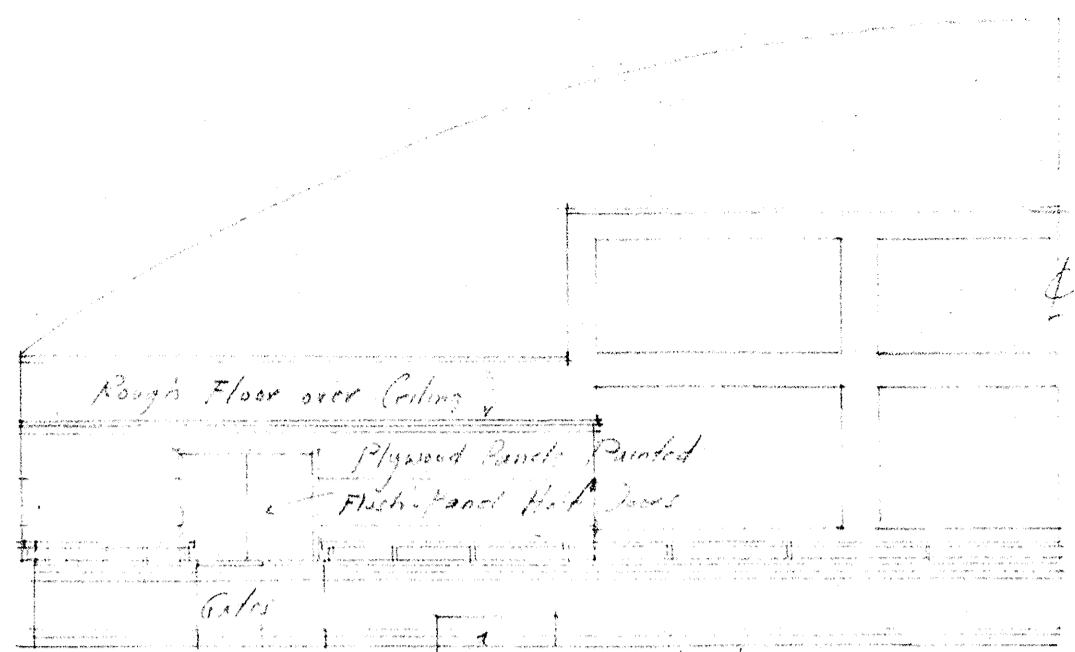 Rough Floor over Ceiling
℄
Plywood Panels Painted
Flush-Panel Half Doors
Gates
1